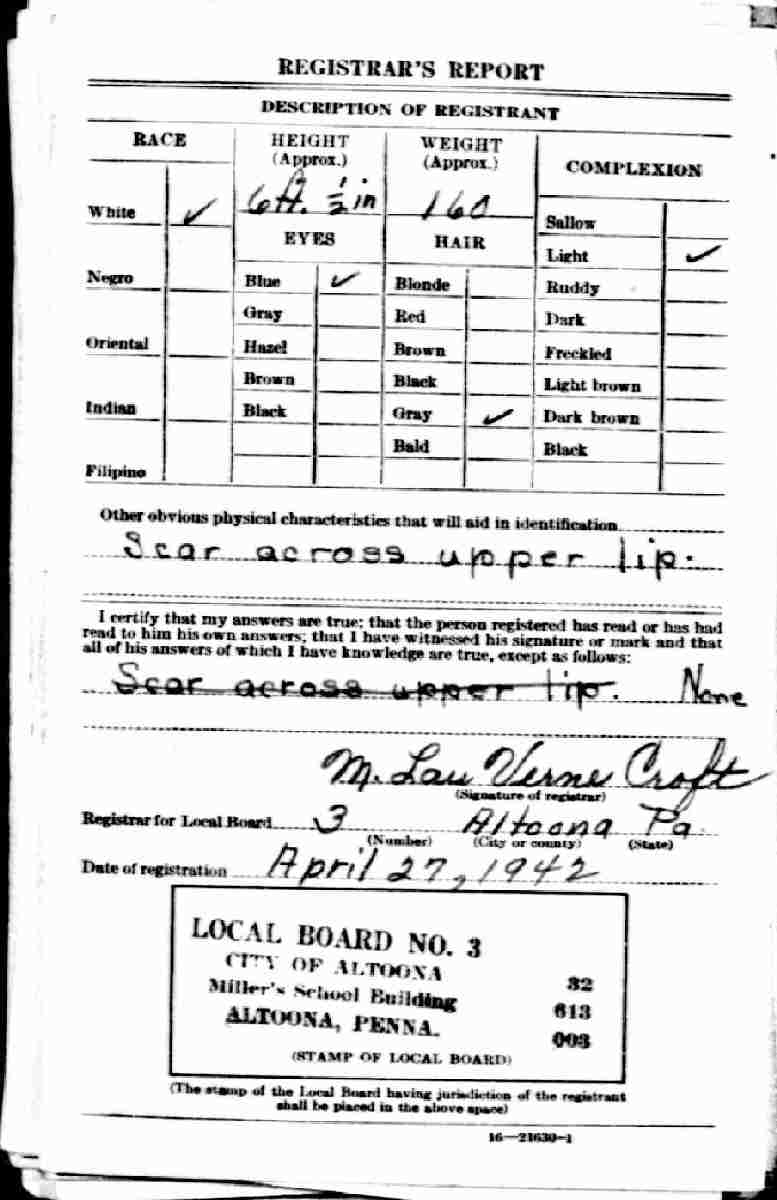 REGISTRAR'S REPORT
DESCRIPTION OF REGISTRANT
RACE HEIGHT (Approx.) WEIGHT (Approx.) COMPLEXION
White ✓ 6 ft. ½ in 160 Sallow
EYES HAIR Light ✓
Negro Blue ✓ Blonde Ruddy
Gray Red Dark
Oriental Hazel Brown Freckled
Brown Black Light brown
Indian Black Gray ✓ Dark brown
Bald Black
Filipino
Other obvious physical characteristics that will aid in identification
Scar across upper lip.
I certify that my answers are true; that the person registered has read or has had
read to him his own answers; that I have witnessed his signature or mark and that
all of his answers of which I have knowledge are true, except as follows:
Scar across upper lip. None
M. Lau Verne Croft
(Signature of registrar)
Registrar for Local Board 3 Altoona Pa.
(Number) (City or county) (State)
Date of registration April 27, 1942
LOCAL BOARD NO. 3
CITY OF ALTOONA 32
Miller's School Building 613
ALTOONA, PENNA. 003
(STAMP OF LOCAL BOARD)
(The stamp of the Local Board having jurisdiction of the registrant
shall be placed in the above space)
16—21630-1